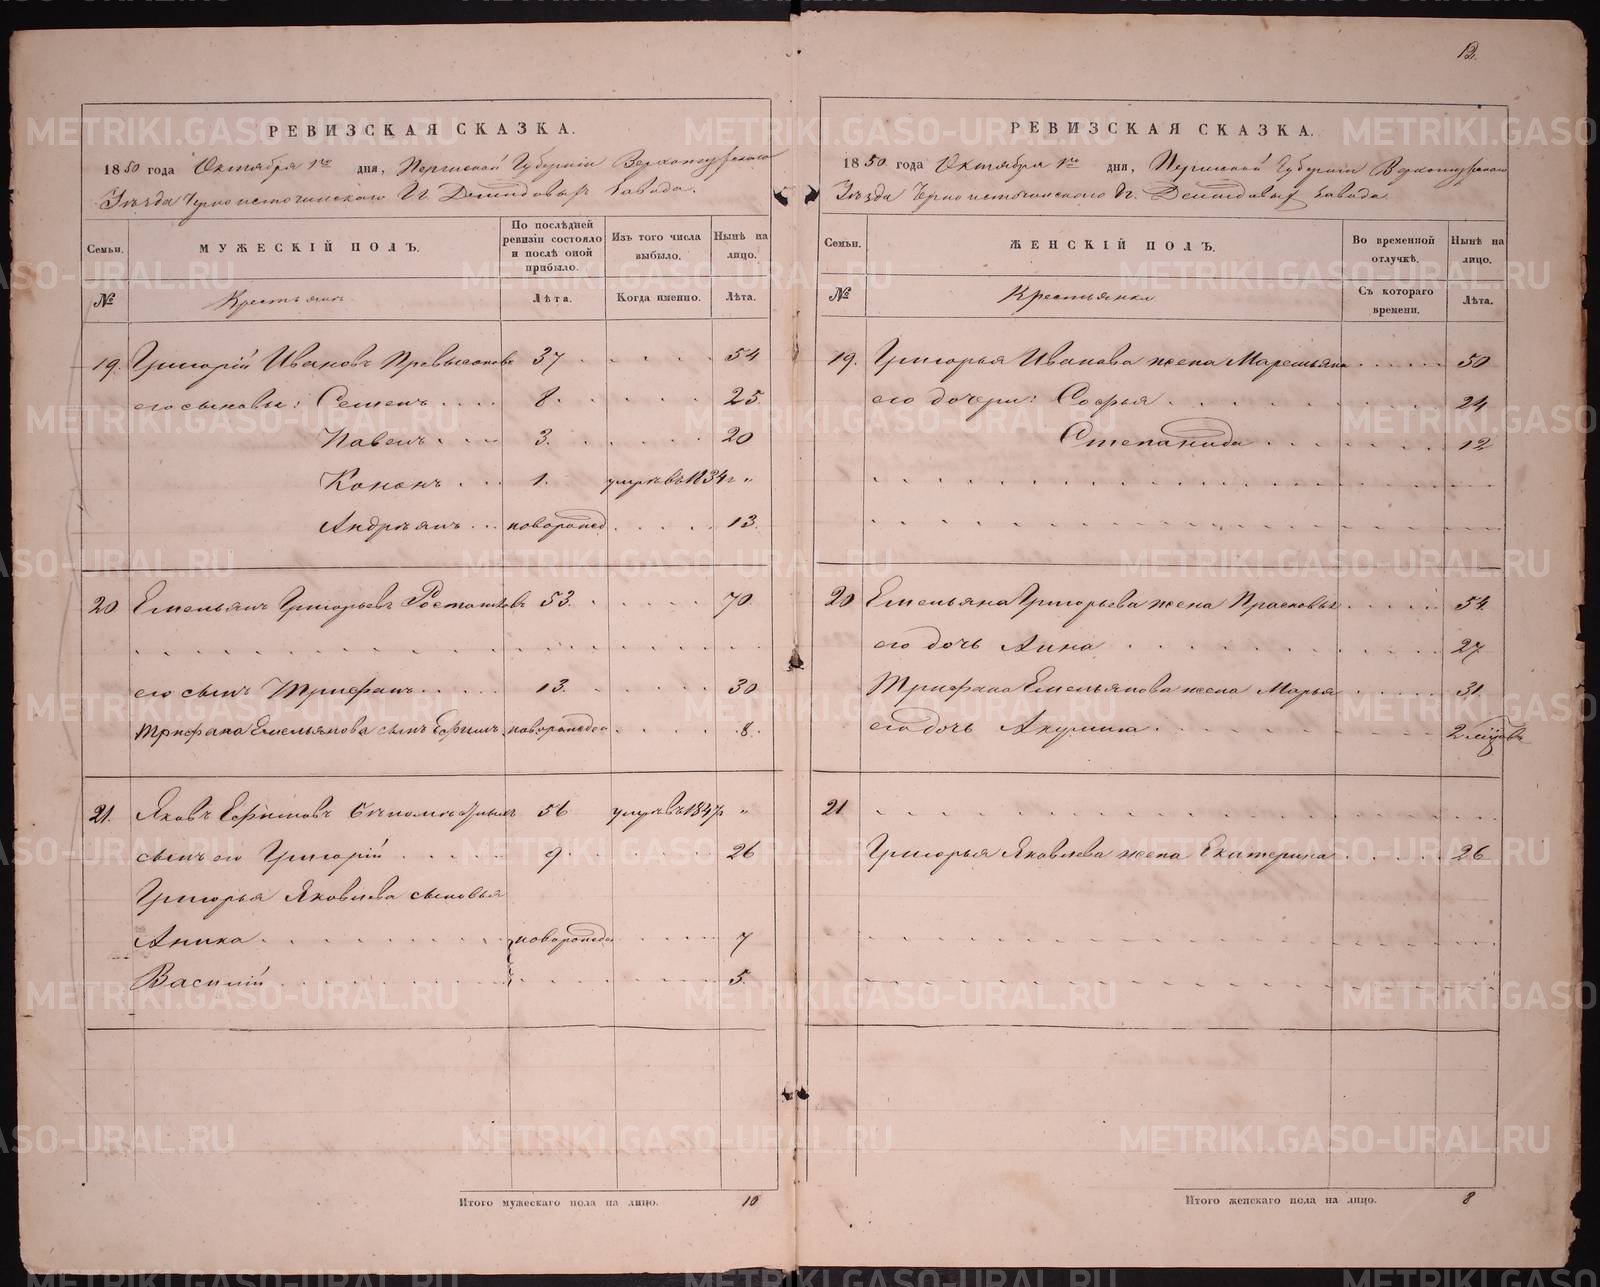 12.
РЕВИЗСКАЯ СКАЗКА.
1850 года Октября 1го дня, Пермской Губерніи Верхотурскаго
Уѣзда Черноисточинскаго Гг. Демидовыхъ Завода.
Семьи.
МУЖЕСКІЙ ПОЛЪ.
По послѣдней ревизіи состояло и послѣ оной прибыло.
Изъ того числа выбыло.
Нынѣ на лицо.
№
Крестьяне
Лѣта.
Когда именно.
Лѣта.
19. Григорій Ивановъ 37 54
его сыновья: Семенъ 8 25
Павелъ 3. 20
Кононъ 1. умръ въ 1834 г „
Андреянъ новорожд 13.
20 Емельянъ Григорьевъ 53. 70.
его сынъ Трифанъ 13. 30
Трифана Емельянова сынъ Ефимъ новорожден 8.
21. Яковъ Ефимовъ 56 умръ въ 1847 „
сынъ его Григорій 9. 26
Григорья Яковлева сыновья
Аника новорожде 7
Василій 5.
Итого мужескаго пола на лицо. 10
РЕВИЗСКАЯ СКАЗКА.
1850 года Октября 1го дня, Пермской Губерніи Верхотурскаго
Уѣзда Черноисточинскаго Гг. Демидовыхъ Завода
Семьи.
ЖЕНСКІЙ ПОЛЪ.
Во временной отлучкѣ.
Нынѣ на лицо.
№
Крестьянки
Съ котораго времени.
Лѣта.
19. Григорья Иванова жена Маремьяна 50
его дочери: Софья 24
Степанида 12
20 Емельяна Григорьева жена Прасковья 54.
его дочь Анна 27
Трифана Емельянова жена Марья 31.
его дочь Акулина 2 мѣсяцовъ
21
Григорья Яковлева жена Екатерина 26
Итого женскаго пола на лицо. 8
METRIKI.GASO-URAL.RU